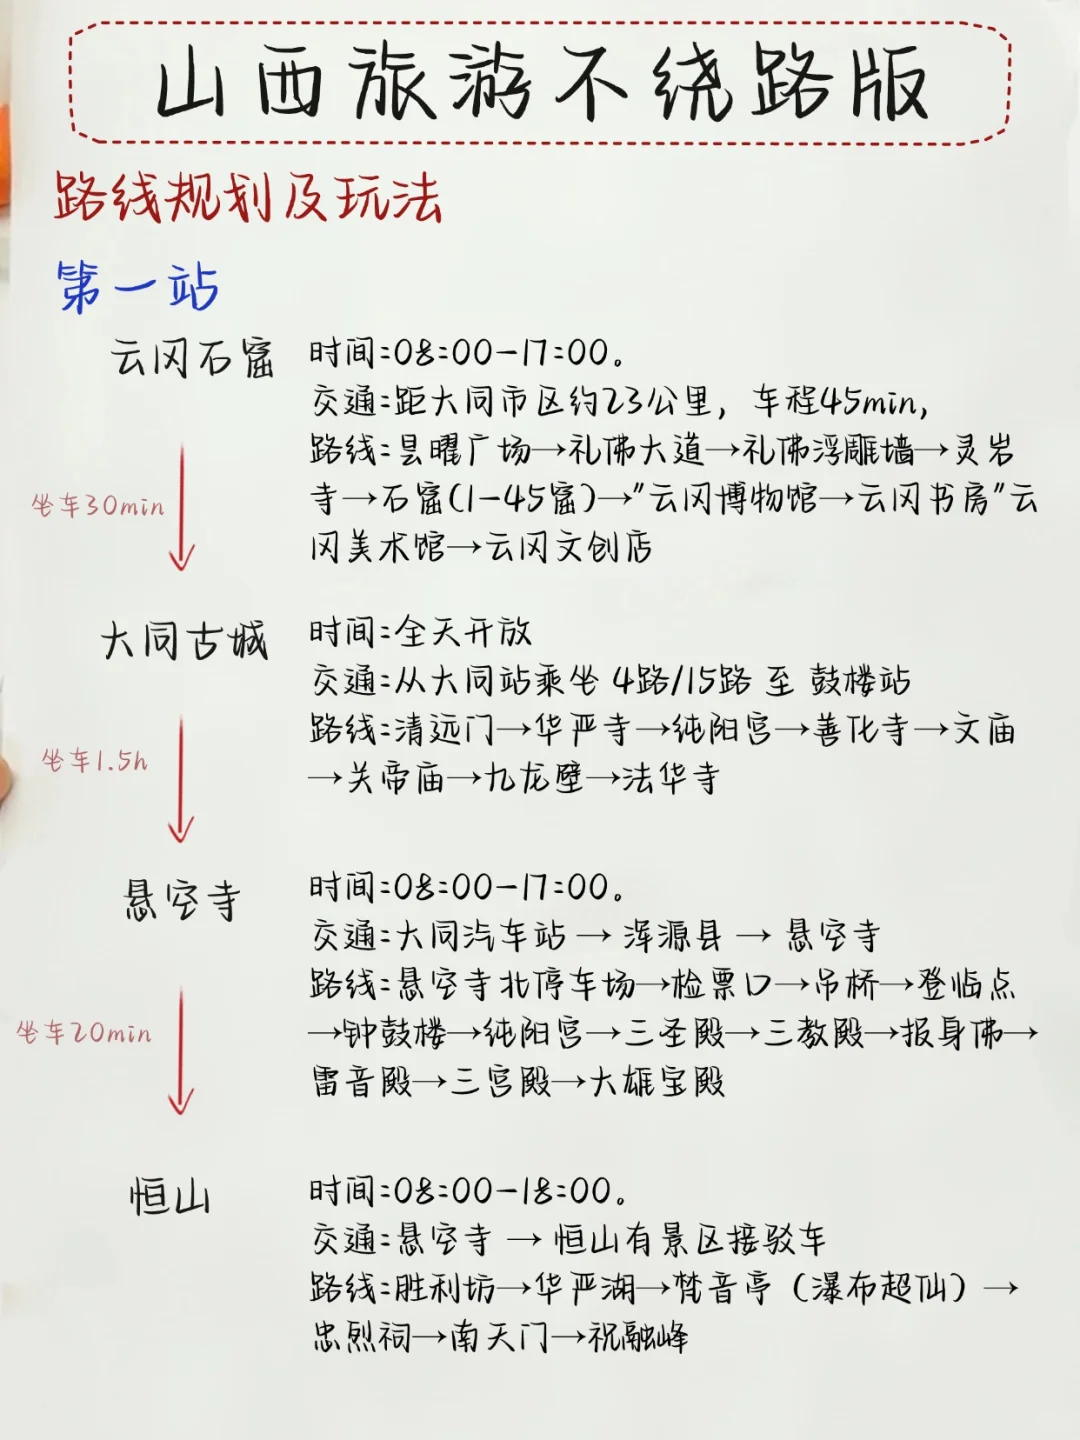 山西旅游不绕路版
路线规划及玩法
第一站
云冈石窟
时间:08:00-17:00。
交通:距大同市区约23公里，车程45min,
路线:昙曜广场→礼佛大道→礼佛浮雕墙→灵岩
寺→石窟(1-45窟)→"云冈博物馆→云冈书房"云
冈美术馆→云冈文创店
坐车30min
大同古城
时间:全天开放
交通:从大同站乘坐 4路/15路 至 鼓楼站
路线:清远门→华严寺→纯阳宫→善化寺→文庙
→关帝庙→九龙壁→法华寺
坐车1.5h
悬空寺
时间:08:00-17:00。
交通:大同汽车站 → 浑源县 → 悬空寺
路线:悬空寺北停车场→检票口→吊桥→登临点
→钟鼓楼→纯阳宫→三圣殿→三教殿→报身佛→
雷音殿→三宫殿→大雄宝殿
坐车20min
恒山
时间:08:00-18:00。
交通:悬空寺 → 恒山有景区接驳车
路线:胜利坊→华严湖→梵音亭（瀑布超仙）→
忠烈祠→南天门→祝融峰